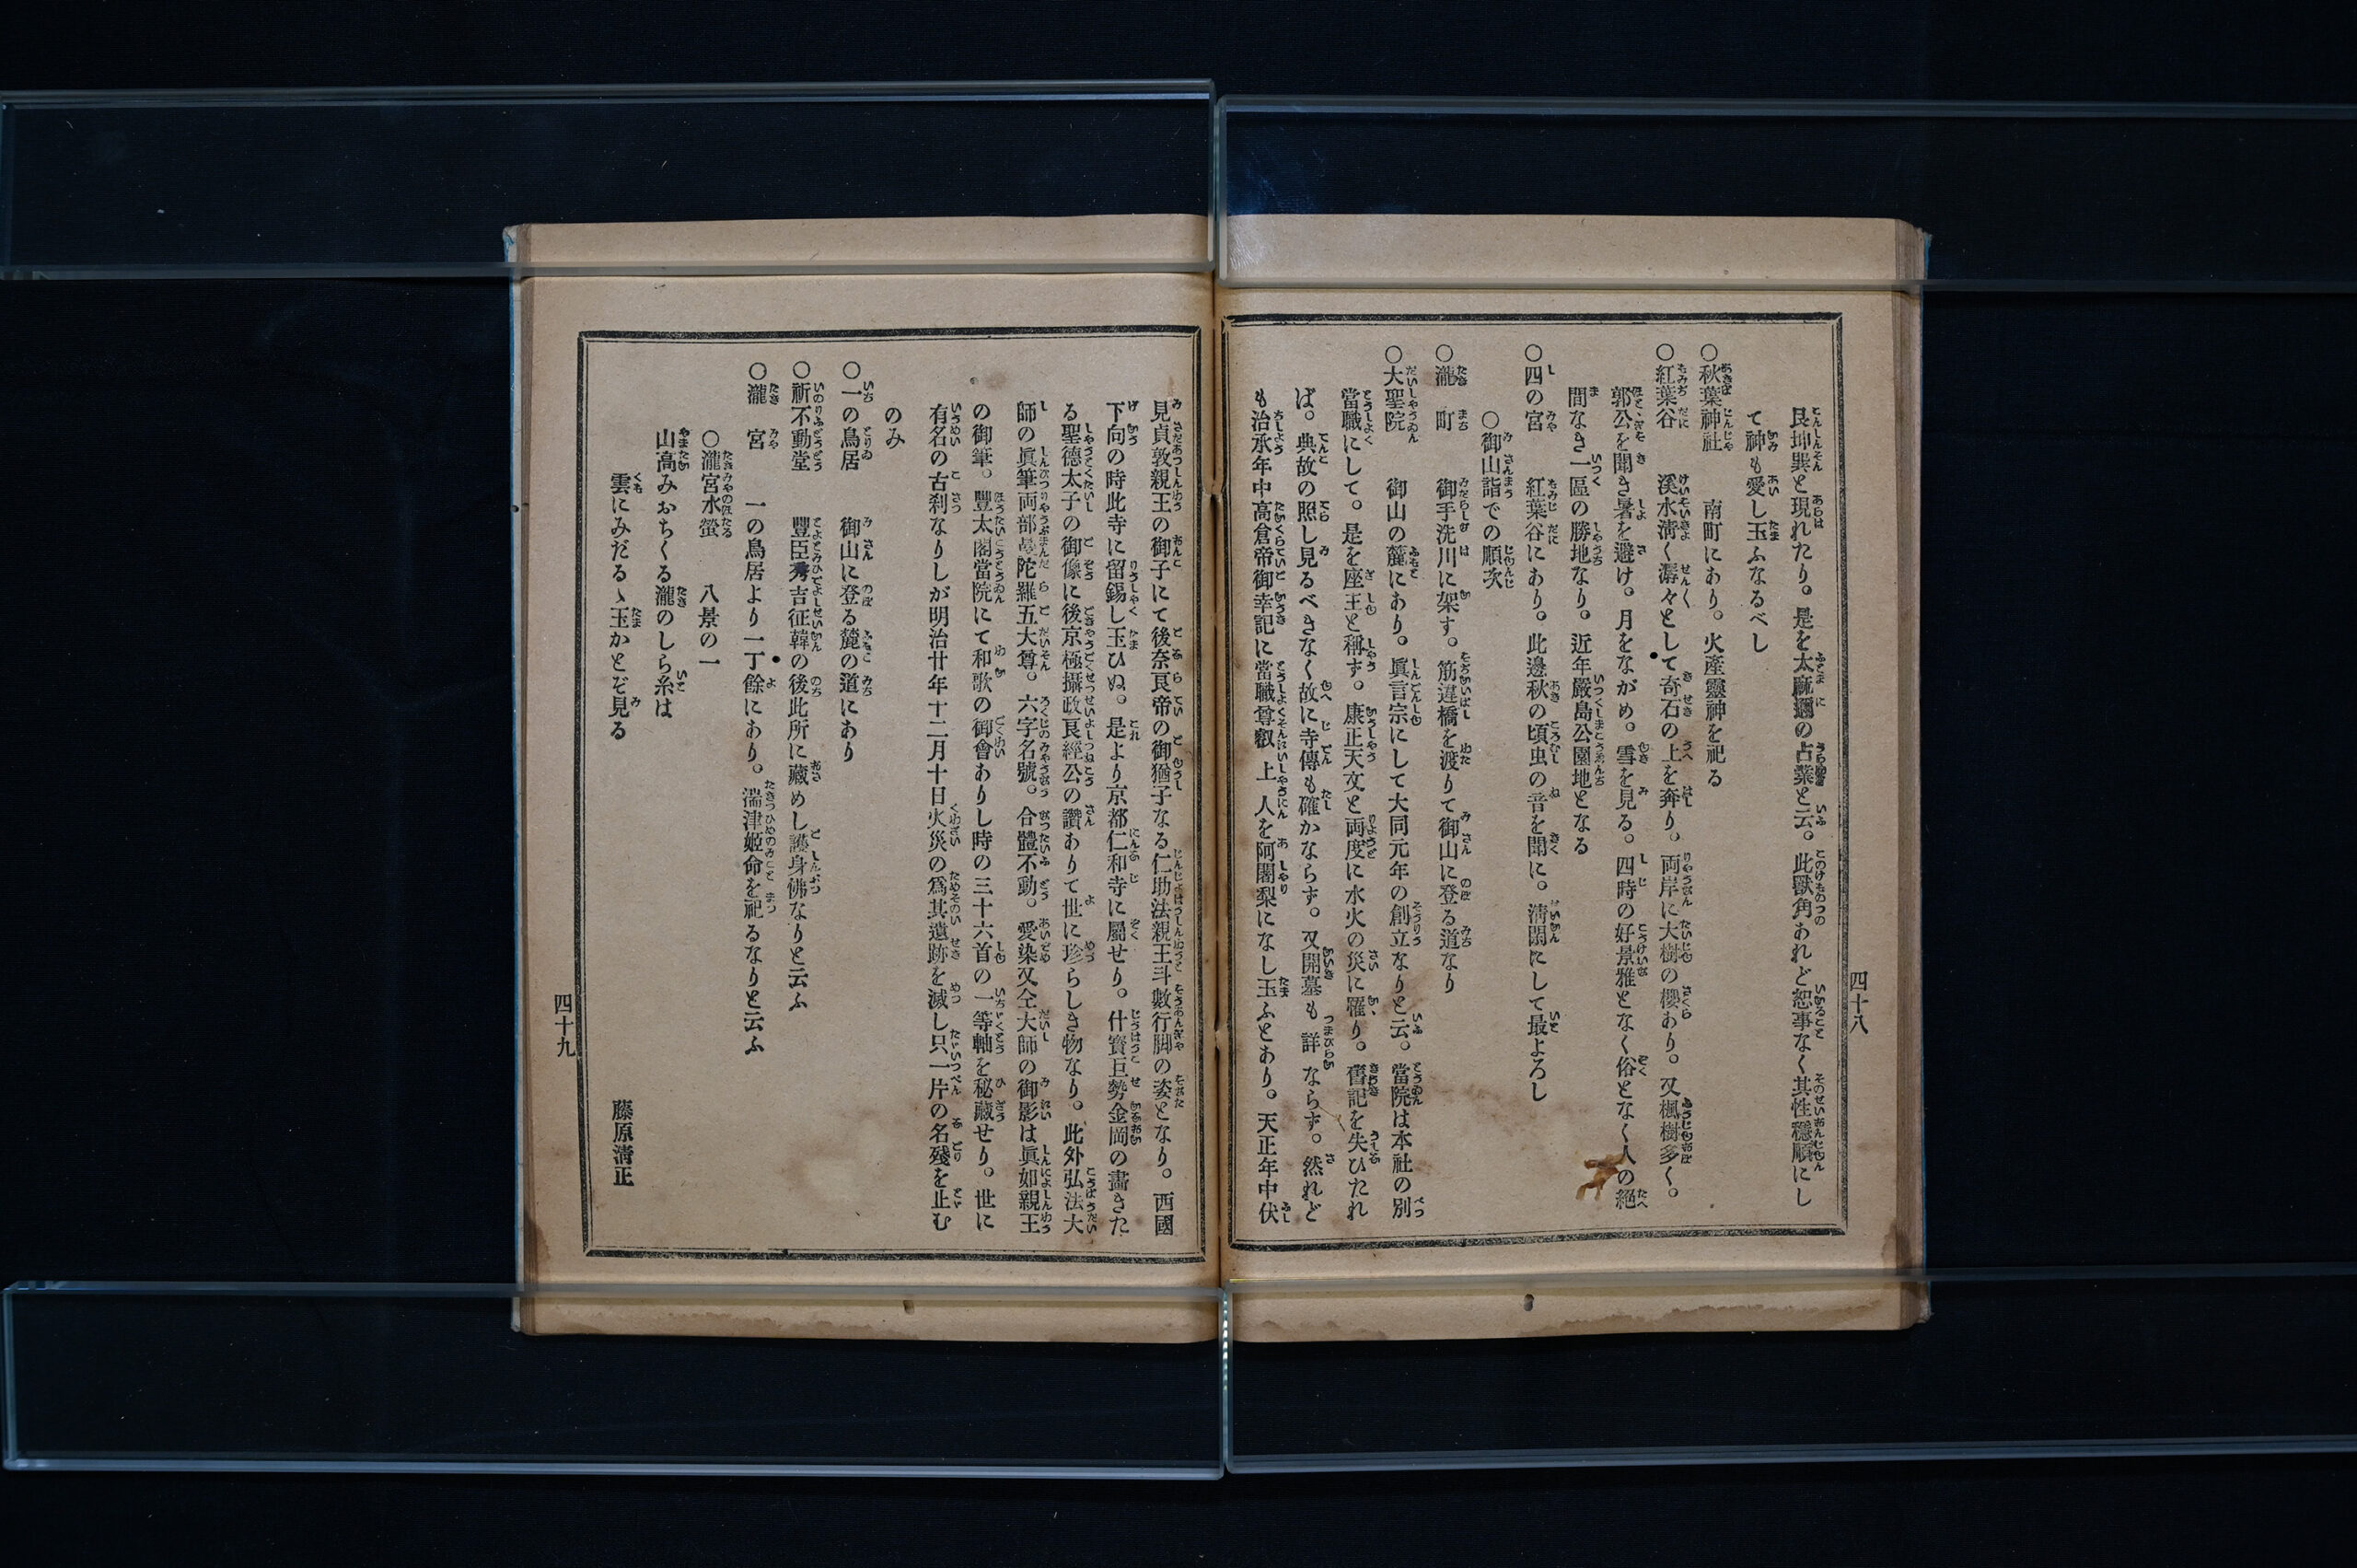 艮坤巽と現れたり。是を太麻邇の占業と云。此獸角あれど恕事なく其性穩順にし
て神も愛し玉ふなるべし
○秋葉神社　南町にあり。火產靈神を祀る
○紅葉谷　溪水淸く潺々として奇石の上を奔り。両岸に大樹の櫻あり。又楓樹多く。
郭公を聞き暑を避け。月をながめ。雪を見る。四時の好景雅となく俗となく人の絕
間なき一區の勝地なり。近年嚴島公園地となる
○四の宮　紅葉谷にあり。此邊秋の頃虫の音を聞に。淸閑にして最よろし
○御山詣での順次
○瀧町　御手洗川に架す。筋違橋を渡りて御山に登る道なり
○大聖院　御山の麓にあり。眞言宗にして大同元年の創立なりと云。當院は本社の別
當職にして。是を座主と稱す。康正天文と両度に水火の災に罹り。舊記を失ひたれ
ば。典故の照し見るべきなく故に寺傳も確かならす。又開墓も詳ならす。然れど
も治承年中高倉帝御幸記に當職尊叡上人を阿闍梨になし玉ふとあり。天正年中伏
四十八
見貞敦親王の御子にて後奈良帝の御猶子なる仁助法親王斗數行脚の姿となり。西國
下向の時此寺に留錫し玉ひぬ。是より京都仁和寺に屬せり。什寳巨勢金岡の畵きた
る聖德太子の御像に後京極攝政良經公の讚ありて世に珍らしき物なり。此外弘法大
師の眞筆両部曼陀羅五大尊。六字名號。合體不動。愛染又仝大師の御影は眞如親王
の御筆。豐太閤當院にて和歌の御會ありし時の三十六首の一等軸を秘藏せり。世に
有名の古刹なりしが明治廿年十二月十日火災の爲其遺跡を滅し只一片の名殘を止む
のみ
○一の鳥居　御山に登る麓の道にあり
○祈不動堂　豐臣秀吉征韓の後此所に藏めし護身佛なりと云ふ
○瀧宮　一の鳥居より一丁餘にあり。湍津姬命を祀るなりと云ふ
○瀧宮水螢　八景の一
山高みおちくる瀧のしら糸は
雲にみだるゝ玉かとぞ見る　藤原淸正
四十九